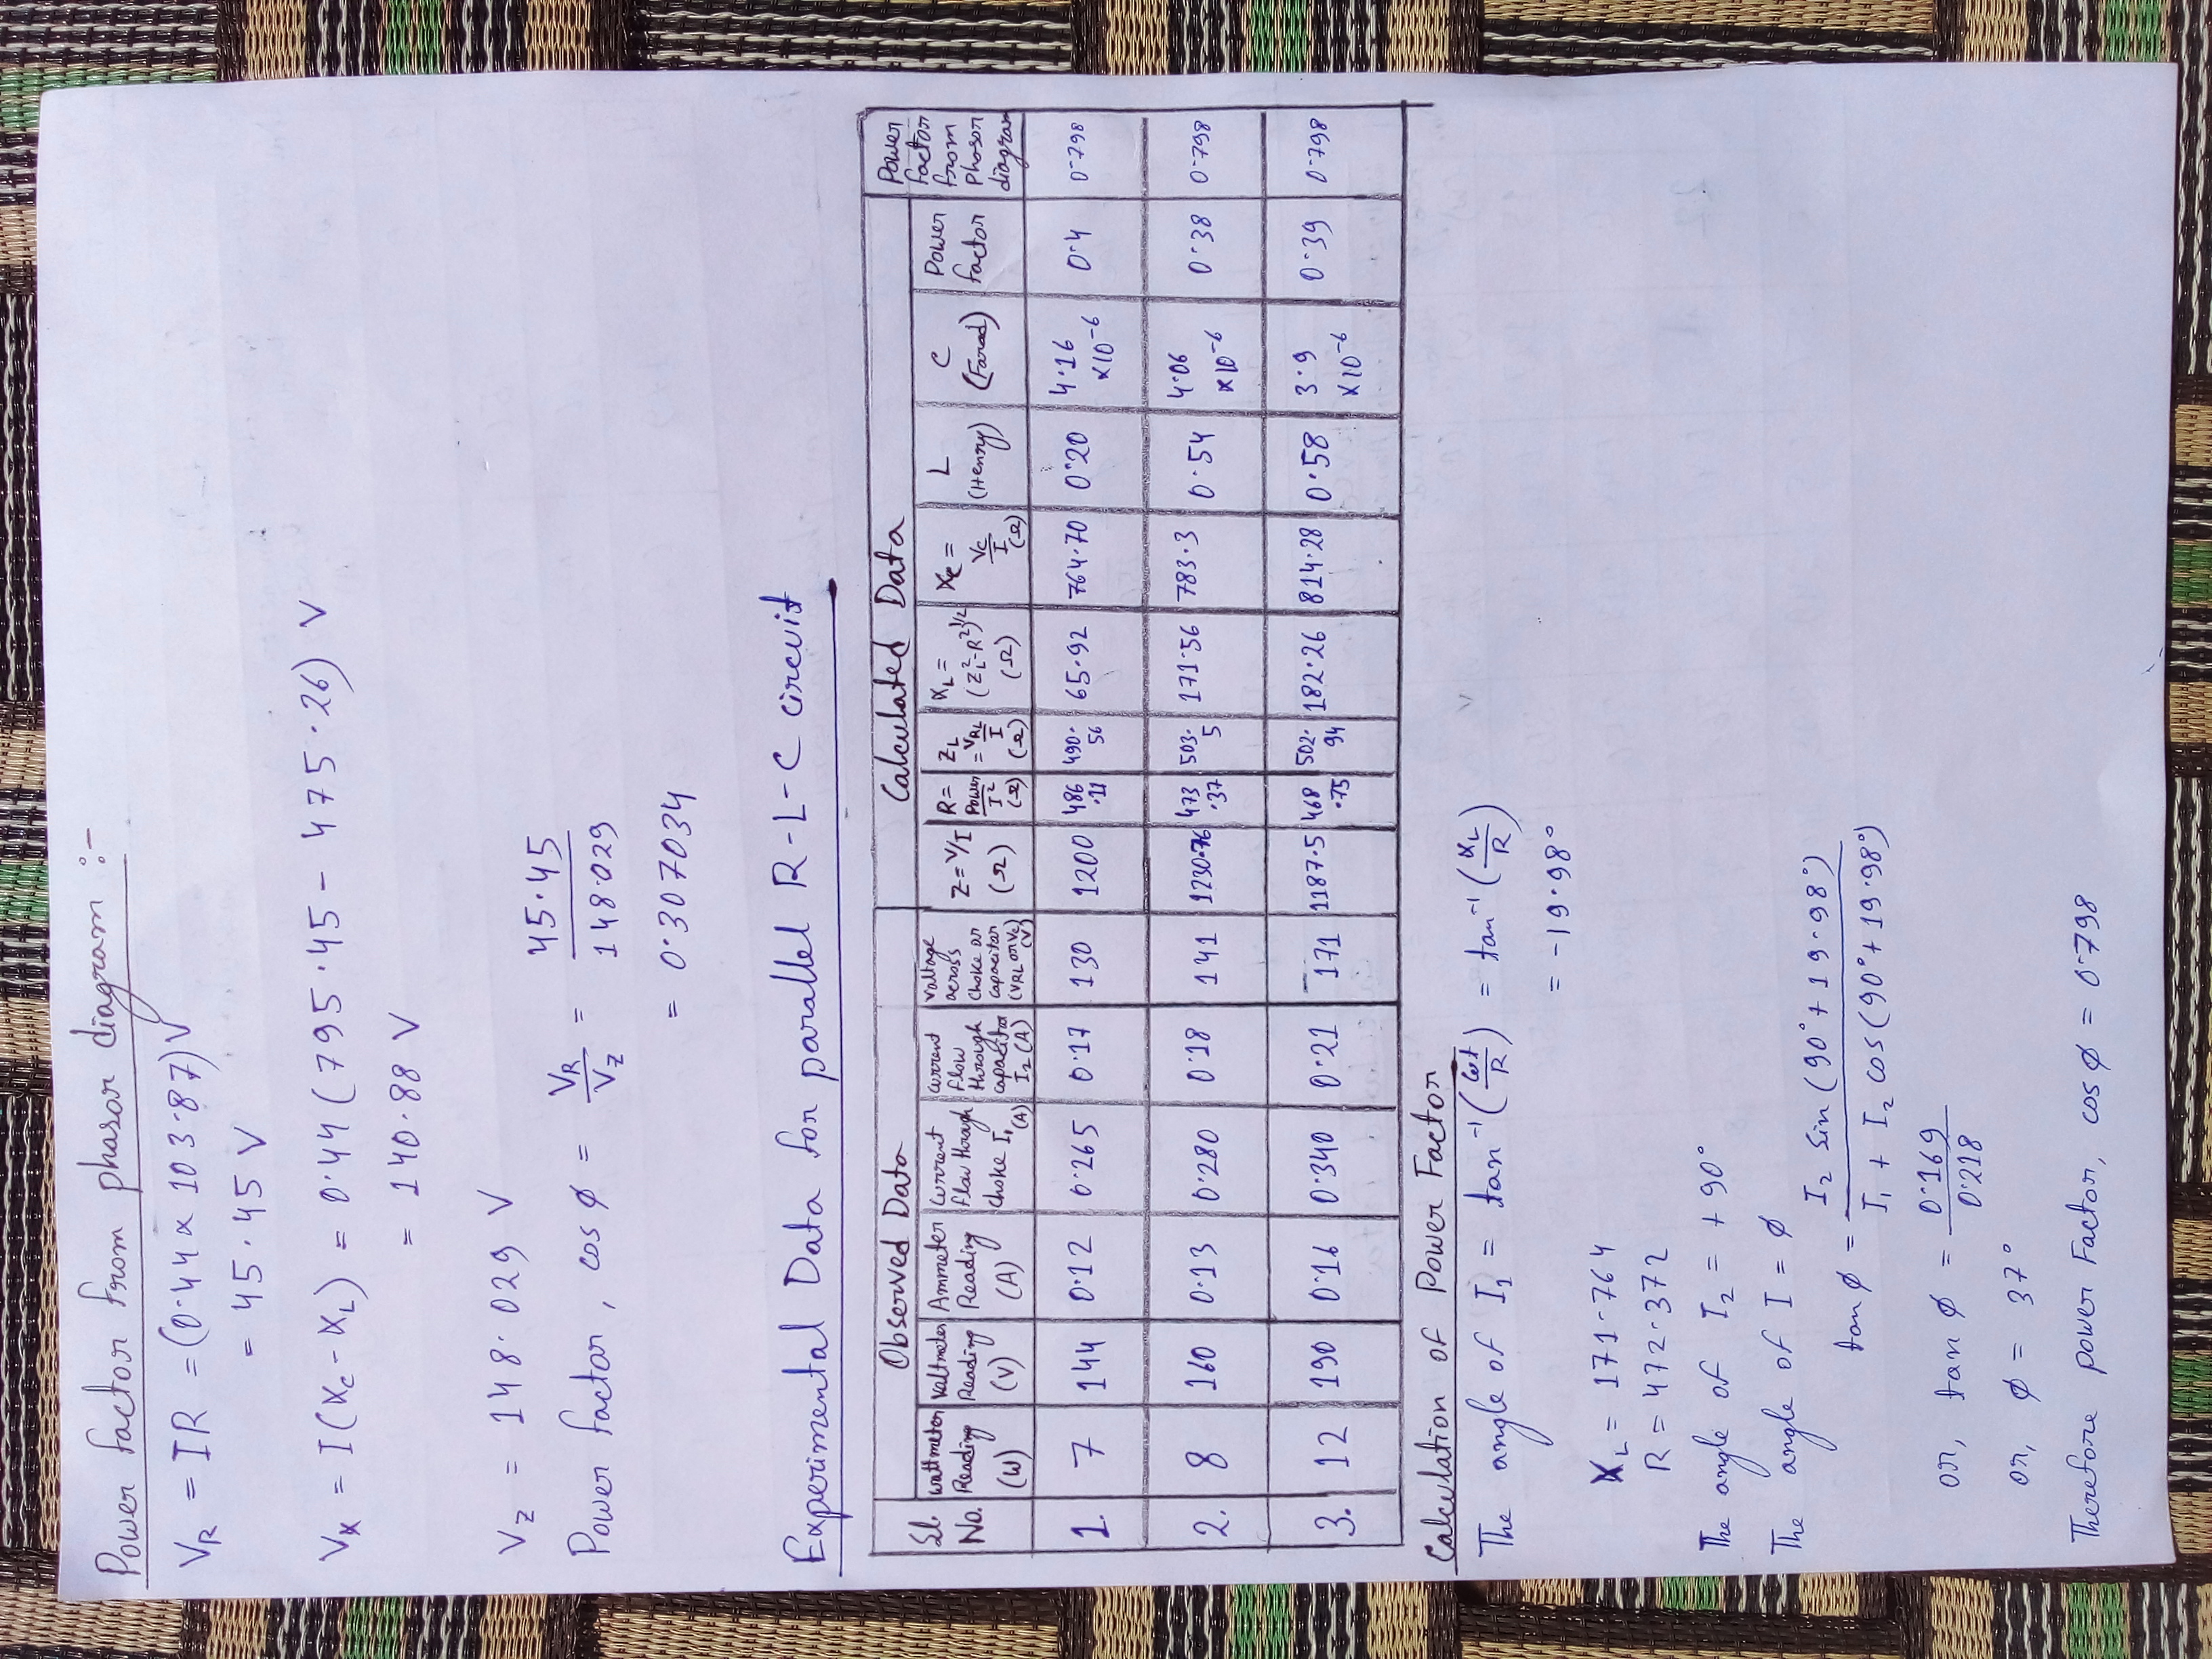 Power factor from phasor diagram :-
V_R = IR = (0.44 × 103.87) V
= 45.45 V
V_X = I(X_C - X_L) = 0.44 (795.45 - 475.26) V
= 140.88 V
V_Z = 148.029 V
Power factor, cos φ = V_R / V_Z = 45.45 / 148.029
= 0.307034
Experimental Data for parallel R-L-C circuit
Sl. No. | Observed Data | Calculated Data | Power factor from phasor diagram
Wattmeter Reading (W) | Voltmeter Reading (V) | Ammeter Reading (A) | Current flow through choke I₁ (A) | Current flow through capacitor I₂ (A) | Voltage across choke or capacitor (V_RL or V_C) (V) | Z = V/I (Ω) | R = Power/I² (Ω) | Z_L = V_RL/I (Ω) | X_L = (Z_L² - R²)^1/2 (Ω) | X_C = V_C/I (Ω) | L (Henry) | C (Farad) | Power factor
1. | 7 | 144 | 0.12 | 0.265 | 0.17 | 130 | 1200 | 486.11 | 490.56 | 65.92 | 764.70 | 0.20 | 4.16 ×10⁻⁶ | 0.4 | 0.798
2. | 8 | 160 | 0.13 | 0.280 | 0.18 | 141 | 1230.76 | 473.37 | 503.5 | 171.56 | 783.3 | 0.54 | 4.06 ×10⁻⁶ | 0.38 | 0.798
3. | 12 | 190 | 0.16 | 0.340 | 0.21 | 171 | 1187.5 | 468.75 | 502.94 | 182.26 | 814.28 | 0.58 | 3.9 ×10⁻⁶ | 0.39 | 0.798
Calculation of Power Factor
The angle of I₁ = tan⁻¹(ωL/R) = tan⁻¹(X_L/R)
= -19.98°
X_L = 171.764
R = 472.372
The angle of I₂ = +90°
The angle of I = φ
tan φ = I₂ sin (90° + 19.98°) / I₁ + I₂ cos (90° + 19.98°)
or, tan φ = 0.169 / 0.218
or, φ = 37°
Therefore power Factor, cos φ = 0.798